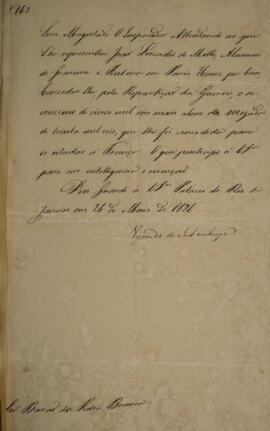 162
Sua Magestade O Imperador Attendendo ao que
Lhe representou José Leocadio de Mello, Alumno
de Gravura e Pintura em Pariz Houve por bem
Conceder lhe pela Repartição da Guerra, o
accrescimo de vinte mil reis mais alem da mezada
de trinta mil reis, que lhe foi concedida para
os estudos a França. O que participo a V.Sª
para sua intelligencia e execução.
Deos Guarde a V.Sª Palacio do Rio de
Janeiro em 26 de Maio de 1826
Visconde de Inhambupe
Barão da Pedra Branca